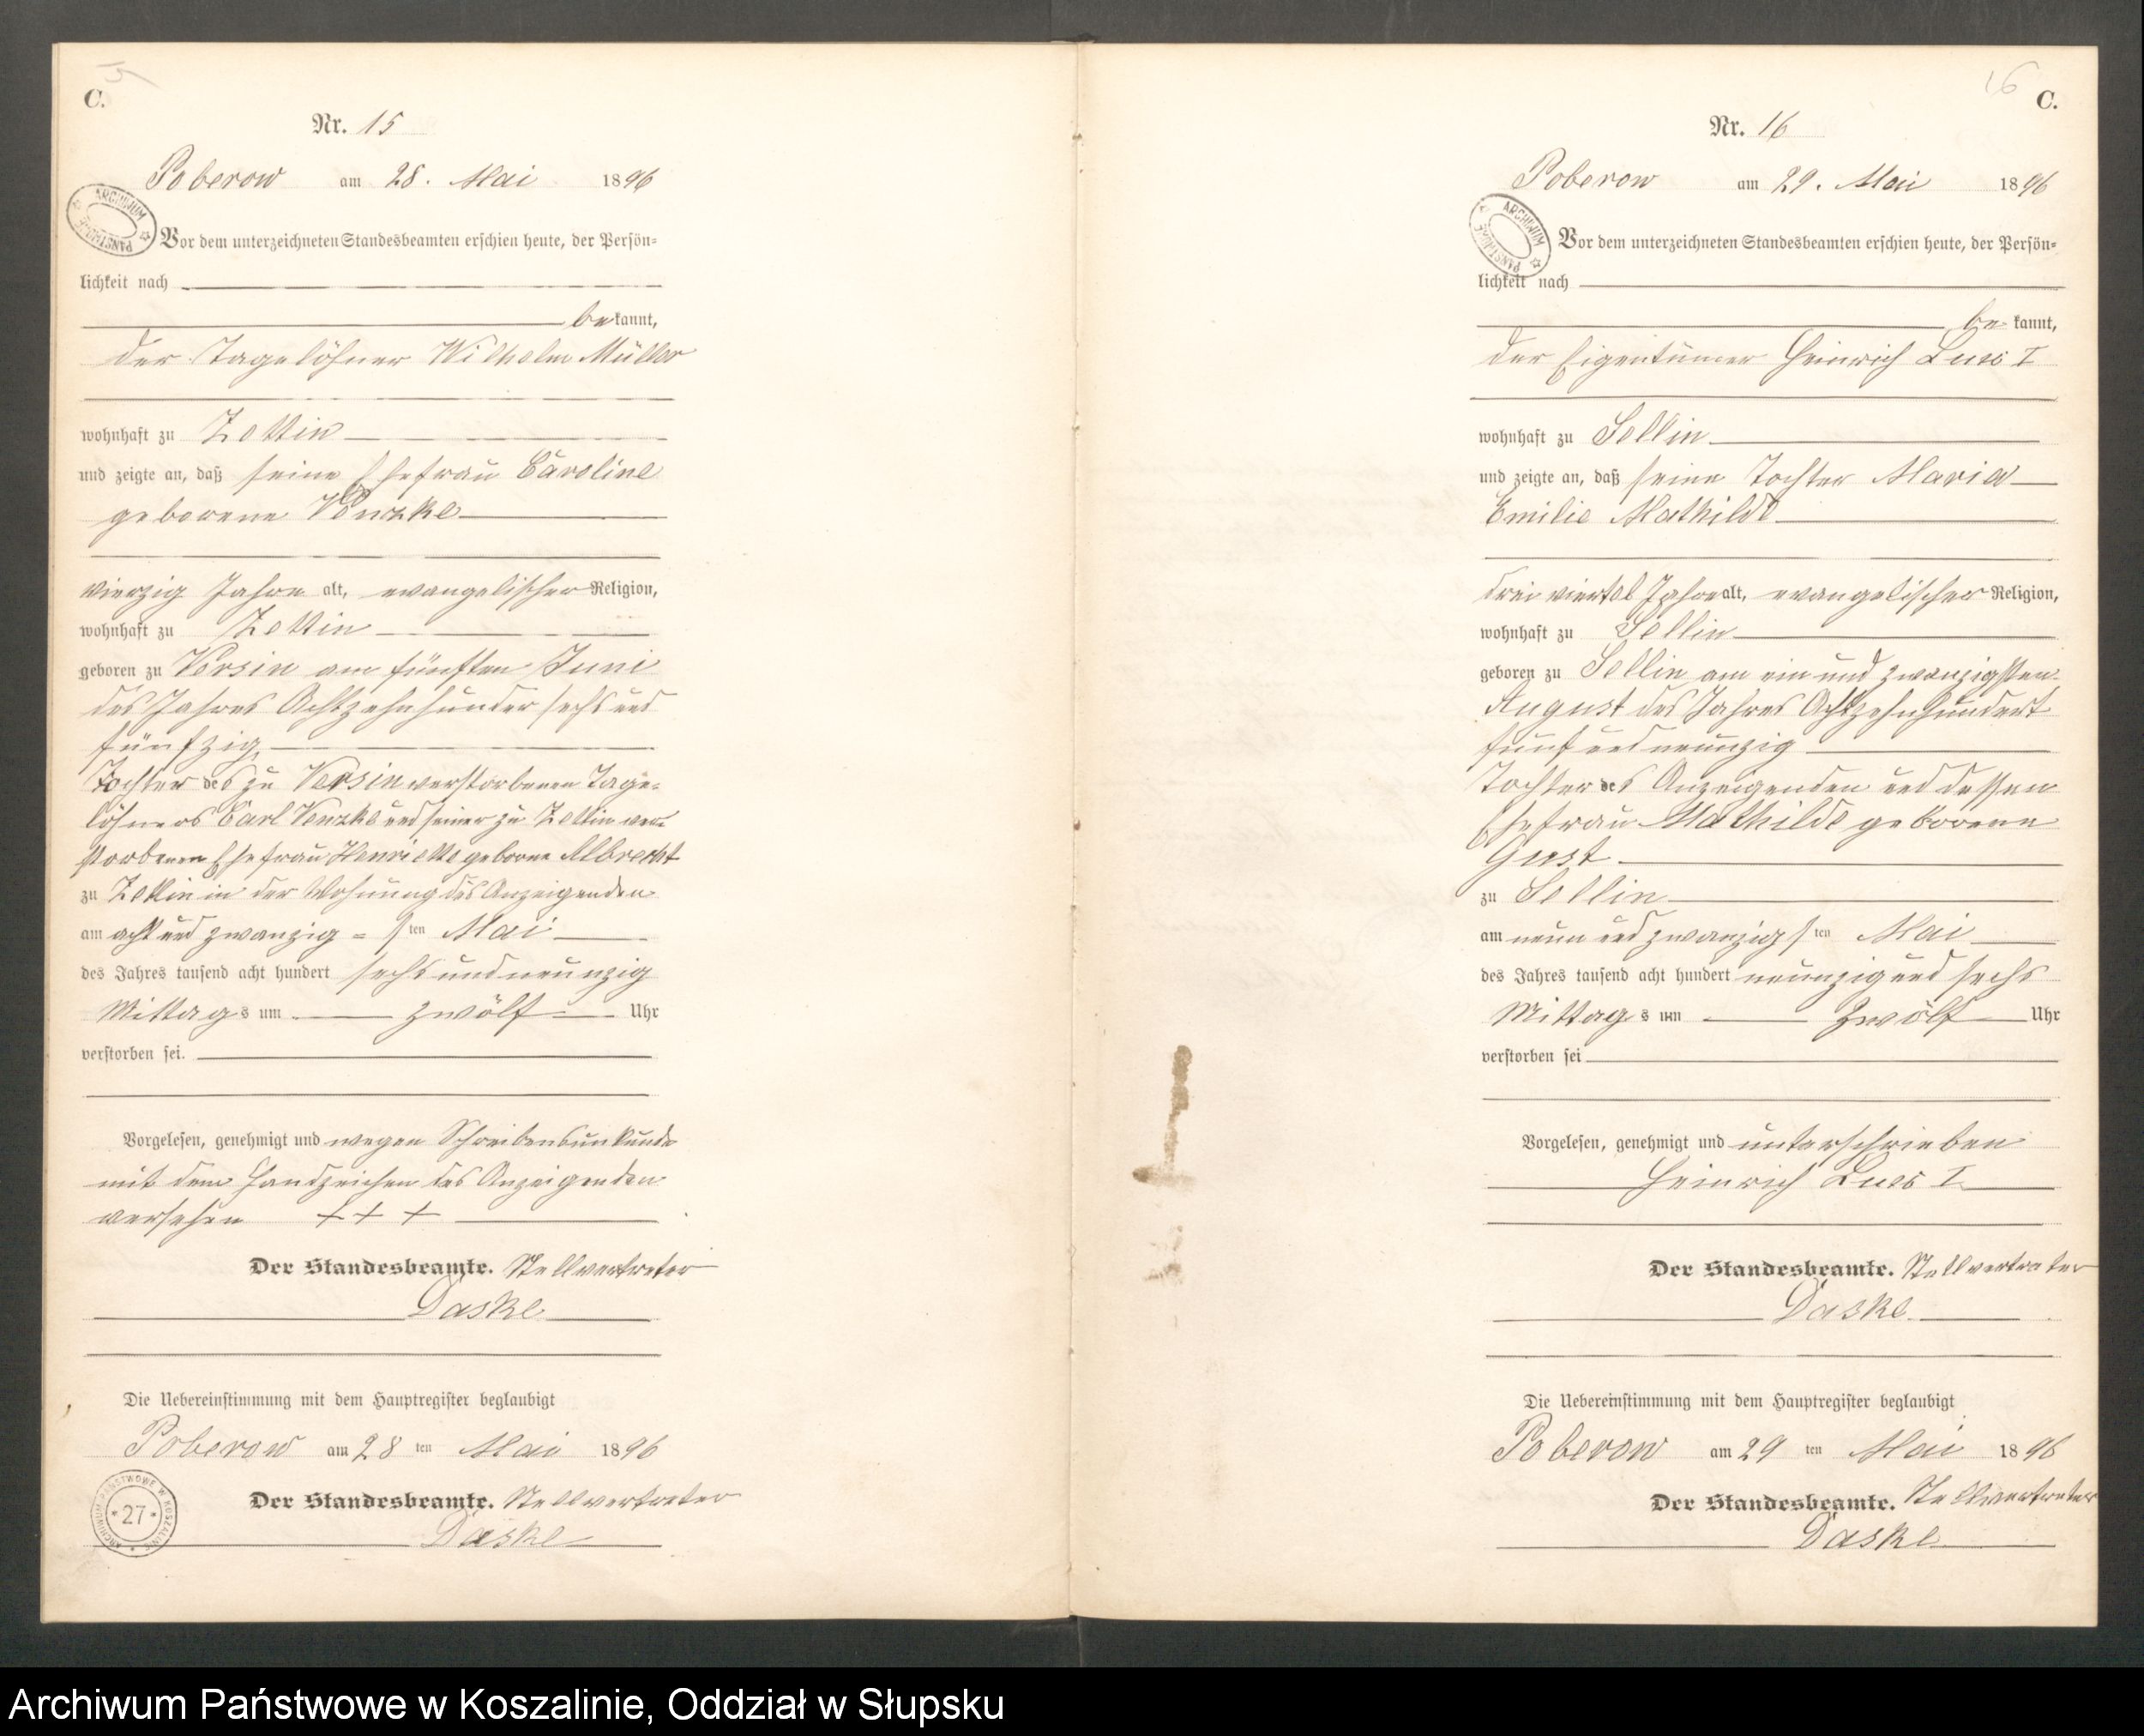 15
C.
Nr. 15
Poberow am 28. Mai 1896
ARCHIWUM PAŃSTWOWE
Vor dem unterzeichneten Standesbeamten erschien heute, der Persön-
lichkeit nach
bekannt,
der Tagelöhner Wilhelm Müller
wohnhaft zu Zettin
und zeigte an, daß seine Ehefrau Caroline
geborene Venzke
vierzig Jahre alt, evangelischer Religion,
wohnhaft zu Zettin
geboren zu Versin am fünften Juni
des Jahres Achtzehnhunder sechs und
fünfzig,
Tochter des zu Versin verstorbenen Tage-
löhners Carl Venzke und seiner zu Zettin ver-
storbenen Ehefrau Henriette geborne Albrecht
zu Zettin in der Wohnung des Anzeigenden
am acht und zwanzig = sten Mai
des Jahres tausend acht hundert sechs und neunzig
Mittags um zwölf Uhr
verstorben sei.
Vorgelesen, genehmigt und wegen Schreibensunkunde
mit dem Handzeichen des Anzeigenden
versehen + + +
Der Standesbeamte. Stellvertreter
Daske
Die Uebereinstimmung mit dem Hauptregister beglaubigt
Poberow am 28 ten Mai 1896
Der Standesbeamte. Stellvertreter
Daske
ARCHIWUM PAŃSTWOWE W KOSZALINIE
*27*
16
C.
Nr. 16
Poberow am 29. Mai 1896
ARCHIWUM PAŃSTWOWE
Vor dem unterzeichneten Standesbeamten erschien heute, der Persön-
lichkeit nach
bekannt,
der Eigentümer Heinrich I
wohnhaft zu Sellin
und zeigte an, daß seine Tochter Maria
Emilie Mathilde
drei viertel Jahre alt, evangelischer Religion,
wohnhaft zu Sellin
geboren zu Sellin am ein und zwanzigsten
August des Jahres Achtzehnhundert
fünf und neunzig
Tochter des Anzeigenden und dessen
Ehefrau Mathilde geborene
Gust
zu Sellin
am neun und zwanzigsten Mai
des Jahres tausend acht hundert neunzig und sechs
Mittags um Zwölf Uhr
verstorben sei
Vorgelesen, genehmigt und unterschrieben
Heinrich I
Der Standesbeamte. Stellvertreter
Daske
Die Uebereinstimmung mit dem Hauptregister beglaubigt
Poberow am 29 ten Mai 1896
Der Standesbeamte. Stellvertreter
Daske
Archiwum Państwowe w Koszalinie, Oddział w Słupsku